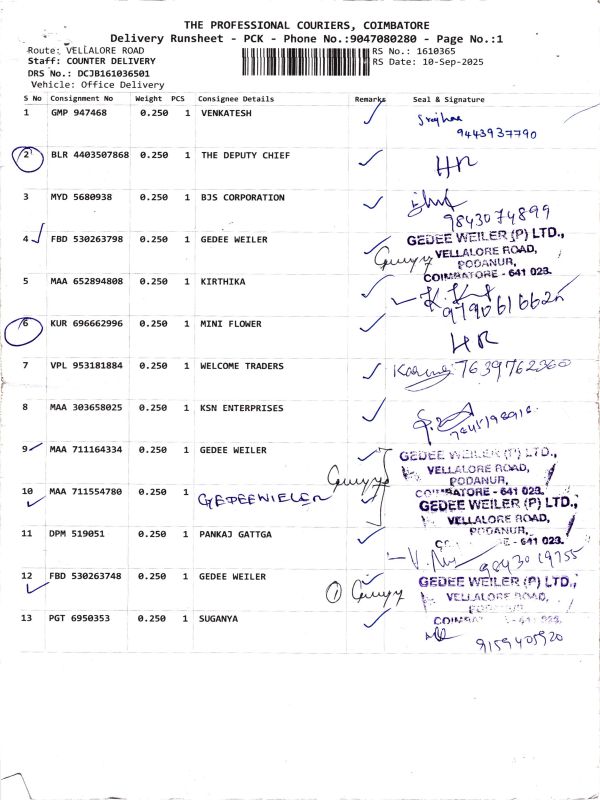 THE PROFESSIONAL COURIERS, COIMBATORE
Delivery Runsheet - PCK - Phone No.:9047080280 - Page No.:1
Route: VELLALORE ROAD
RS No.: 1610365
Staff: COUNTER DELIVERY
RS Date: 10-Sep-2025
DRS No.: DCJB161036501
Vehicle: Office Delivery
S No Consignment No Weight PCS Consignee Details Remarks Seal & Signature
1 GMP 947468 0.250 1 VENKATESH
9443937790
2 BLR 4403507868 0.250 1 THE DEPUTY CHIEF HR
3 MYD 5680938 0.250 1 BJS CORPORATION
9843074899
4 FBD 530263798 0.250 1 GEDEE WEILER
GEDEE WEILER (P) LTD.,
VELLALORE ROAD,
PODANUR,
COIMBATORE - 641 023.
5 MAA 652894808 0.250 1 KIRTHIKA
6 KUR 696662996 0.250 1 MINI FLOWER HR
7 VPL 953181884 0.250 1 WELCOME TRADERS
8 MAA 303658025 0.250 1 KSN ENTERPRISES
9 MAA 711164334 0.250 1 GEDEE WEILER
GEDEE WEILER (P) LTD.,
VELLALORE ROAD,
PODANUR,
COIMBATORE - 641 023.
10 MAA 711554780 0.250 1 GEDEEWIELER
GEDEE WEILER (P) LTD.,
VELLALORE ROAD,
PODANUR,
- 641 023.
11 DPM 519051 0.250 1 PANKAJ GATTGA
9843019755
12 FBD 530263748 0.250 1 GEDEE WEILER
GEDEE WEILER (P) LTD.,
VELLALORE ROAD,
13 PGT 6950353 0.250 1 SUGANYA
9159405920